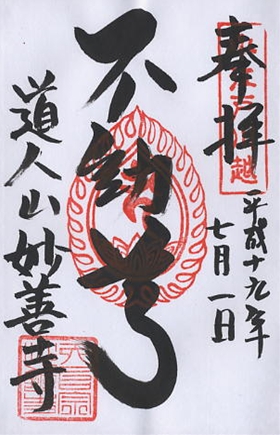 奉拝
平成十九年
七月一日
不動尊
道人山妙善寺